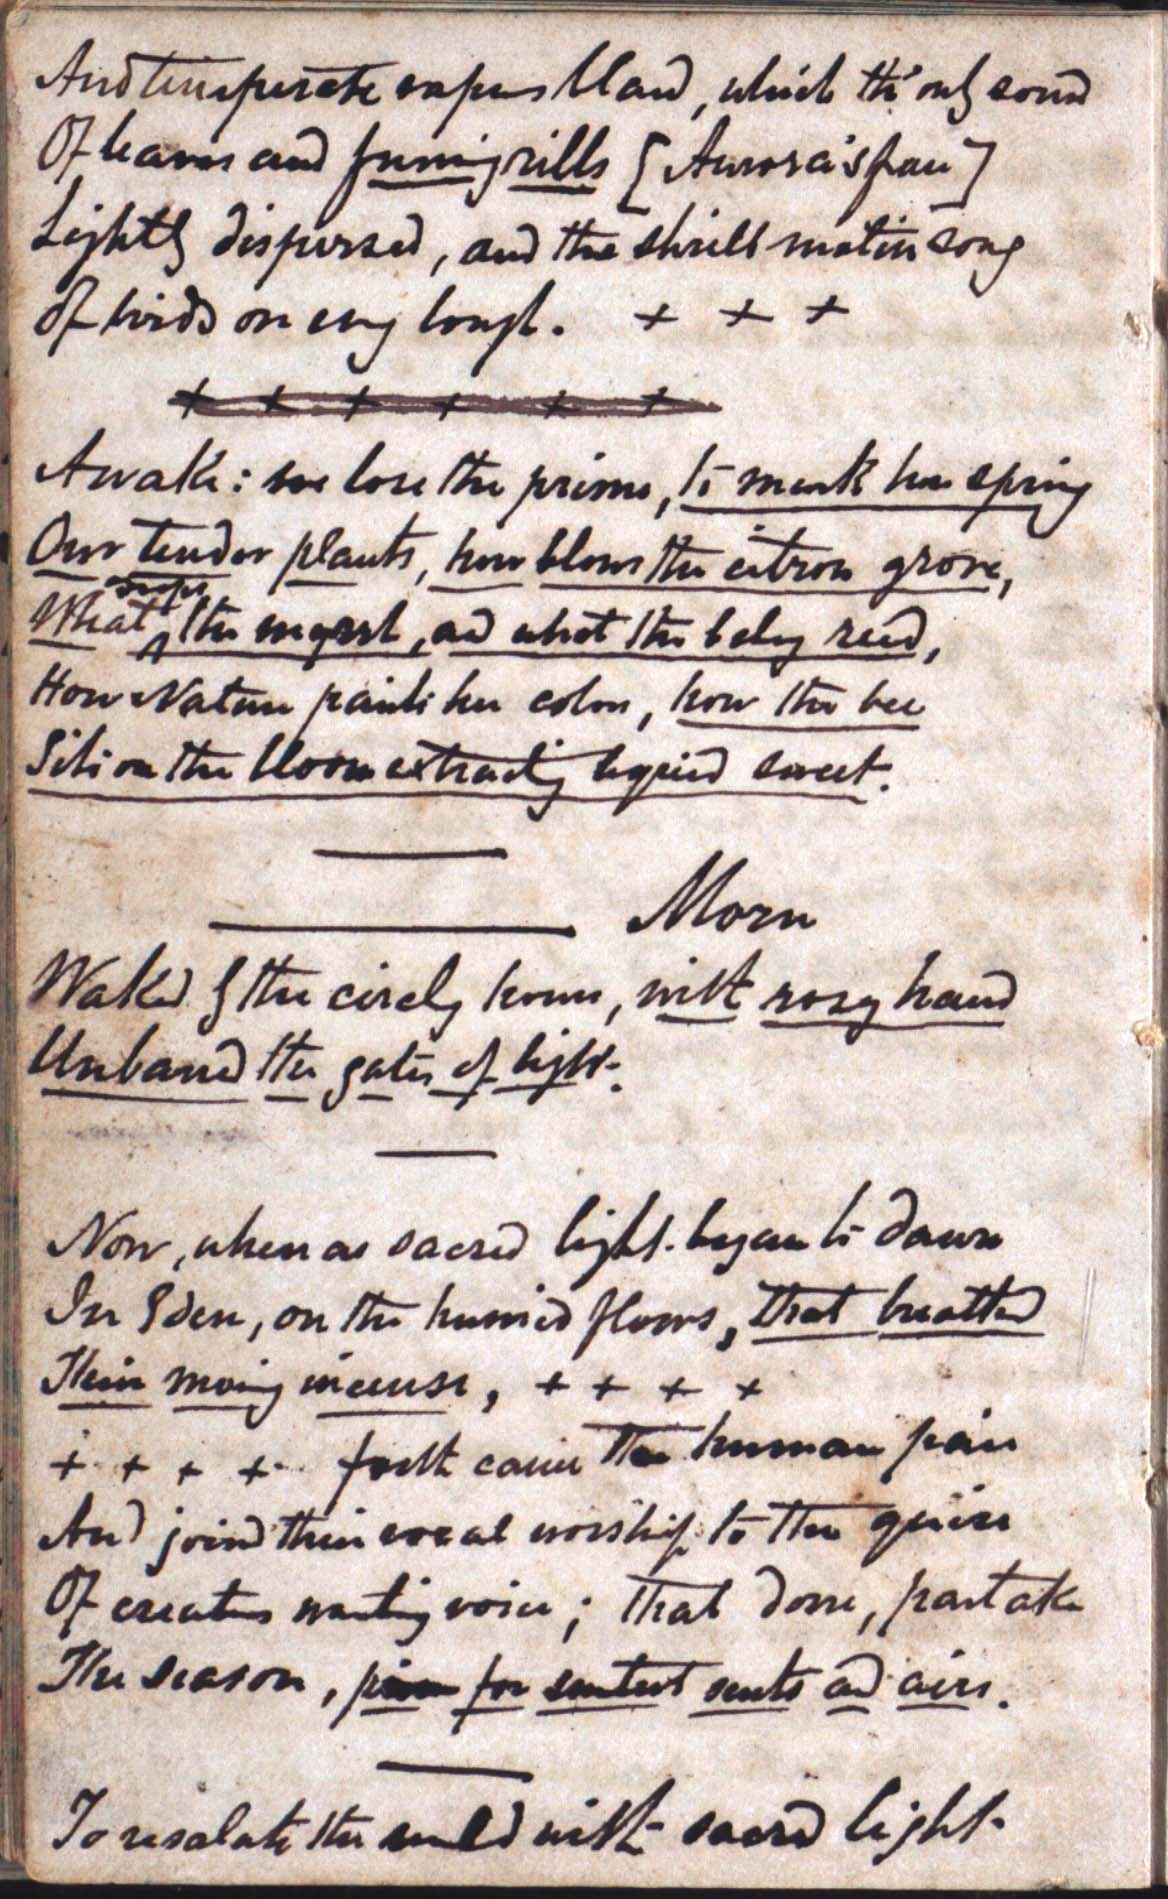 And temperate vapours bland, which th' only sound
Of leaves and fuming rills [Aurora's fan]
Lightly dispersed, and the shrill matin song
Of birds on every bough. + + +
+ + + + + +
Awake: we lose the prime, to mark how spring
Our tender plants, how blows the citron grove,
What drops the myrrh, and what the balmy reed,
How Nature paints her colors, how the bee
Sits on the bloom extracting liquid sweet.
Morn
Waked by the circling hours, with rosy hand
Unbarred the gates of light.
Now, when as sacred light began to dawn
In Eden, on the humid flowers, that breathed
Their morning incense, + + + +
+ + + + forth came the human pair
And joind their vocal worship to the quire
Of creatures wanting voice; that done, partake
The season, prime for sweetest scents and airs.
To resalute the world with sacred light